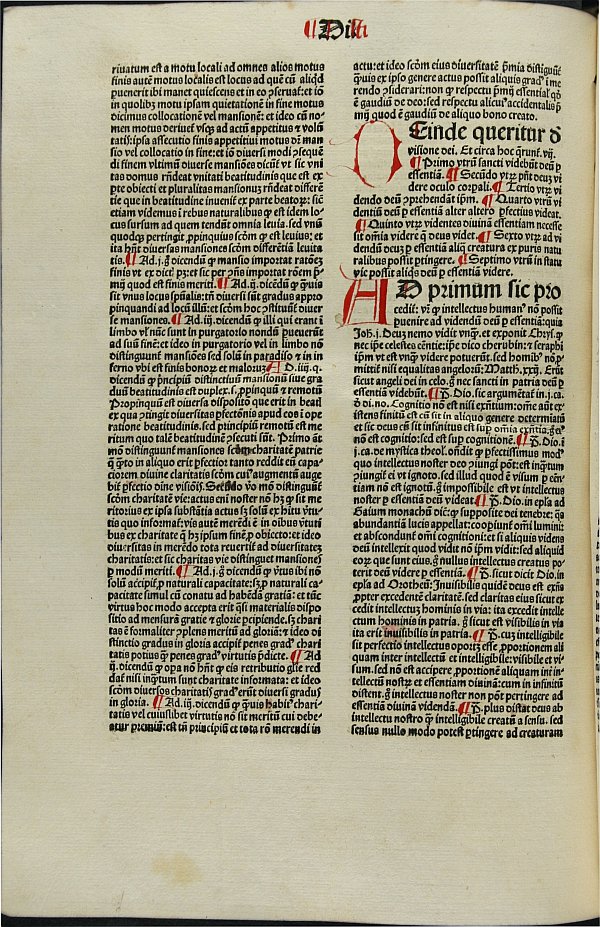 ¶ Disti
riuatum est a motu locali ad omnes alios motus
finis autē motus localis est locus ad quē cū aliqd
puenerit ibi manet quiescens et in eo ɔseruaf: et iō
in quolibȝ motu ipsam quietationē in fine motus
dicimus collocationē vel mansionē: et ideo cū no-
men motus deriuet vsqȝ ad actū appetitus ⁊ volū
tatis: ipsa assecutio finis appetitiui motus dr̄ man
sio vel collocatio in fine: et iō diuersi modi ɔsequē
di finem vltimū diuerse mansiōes dicūt vt sic vni
tas domus rn̄deat vnitati beatitudinis que est ex
pte obiecti et pluralitas mansionuȝ rn̄deat differē
tie que in beatitudine inuenif ex parte beatorȝ: sic
etiam videmus ī rebus naturalibus ꝙ est idem lo-
cus sursum ad quem tendūt omnia leuia. sed vnū
quodqȝ pertingit ꝓpinquius scōm ꝙ est leuius: et
ita hn̄t diuersas mansiones scōm differētiā leuita
tis. ¶ Ad .j. ḡ dicendū ꝙ mansio importat rationeȝ
finis vt ex dictis pȝ: et sic per ɔns importat rōem p̄-
mij quod est finis meriti. ¶ Ad .ij. dicendū ꝙ q̄uis
sit vnus locus spūalis: tn̄ diuersi sūt gradus appro
pinquandi ad locū illū: et scōm hoc ɔstituūt diuer
se mansiones. ¶ Ad .iij. dicendū ꝙ illi qui erant ī
limbo vl̄ nūc sunt in purgatorio nondū puenerūt
ad suū finē: et ideo in purgatorio vel in limbo nō
distinguunt mansiōes sed solū in paradiso ⁊ in in
ferno vbi est finis bonoȝ et maloruȝ AD .iiij. q.
dicendū ꝙ pn̄cipiū distinctiuū mansionū siue gra
duū beatitudinis est duplex .s. ꝓpinquū ⁊ remotū
Propinquū est diuersa dispositio que erit in beatis
ex qua ꝯtingit diuersitas pfectōnis apud eos ī ope
ratione beatitudinis. sed principiū remotū est me
ritum quo talē beatitudinē ɔsecuti sūt. Primo āt
mō distinguunt mansiones scōm charitatē patrie
q̄ q̄to in aliquo erit pfectior tanto reddit eū capa-
ciorem diuine claritatis scōm cui⁹ augmentū auge
bit pfectio diuine visiōis. Secūdo vō mō distinguūt
scōm charitatē vie: actus enī noster nō hȝ ꝙ sit me
ritorius ex ipsa substātia actus sȝ solū ex hītu ṽtu-
tis quo informat: vis autē merēdi ē in oībus ṽtuti
bus ex charitate q̄ hȝ ipsum finē ꝓ obiecto: et ideo
diuersitas in merēdo tota reuertit ad diuersitateȝ
charitatis: et sic charitas vie distinguet mansiones
p modū meriti. ¶ Ad .j. ḡ dicendū ꝙ ṽtus ibi nō
solū accipit ꝓ naturali capacitate: sȝ ꝓ naturali ca-
pacitate simul cū conatu ad habēdā gratiā: et tūc
virtus hoc modo accepta erit q̄si materialis dispo
sitio ad mensurā gratie ⁊ glorie pcipiende. sȝ chari
tas ē formaliter ꝯplens meritū ad gloriā: ⁊ ideo di
stinctio gradus in gloria accipit penes grad⁹ chari
tatis potius ꝙ penes grad⁹ virtutis p̄dicte. ¶ Ad
.ij. dicendū ꝙ opa nō hn̄t ꝙ eis retributio glie red
dat nisi inq̄tum sunt charitate informata: et ideo
scōm diuersos charitatis grad⁹ erūt diuersi gradus
in gloria. ¶ Ad .iij. dicendū ꝙ q̄uis habit⁹ chari-
tatis vel cuiuslibet virtutis nō sit meritū cui debe-
atur premiū: est tn̄ principiū et tota rō merendi in
actu: et ideo scōm eius diuersitatē p̄mia distiguūt
q̄uis ex ipso genere actus possit aliquis grad⁹ ī me
rendo ɔsiderari: non q̄ respectu p̄mij essentialis qd̄
ē gaudiū de deo: sed respectu alicui⁹ accidentalis p̄
mij quod ē gaudiū de aliquo bono creato.
DEinde queritur d̄
visione dei. Et circa hoc q̄runt .vij.
¶ Primo vtrū sancti videbūt deū p
essentiā. ¶ Secūdo vtȝ pn̄t deuȝ vi
dere oculo corpali. ¶ Tertio vtȝ vi
dendo deū ɔprehendāt ipm. ¶ Quarto vtrū vi
dentiū deū p essentiā alter altero pfectius videat.
¶ Quinto vtȝ videntes diuinā essentiam necesse
sit omīa videre q̄ deus videt. ¶ Sexto vtȝ ad vi
dendū deuȝ p essentiā aliq̄ creatura ex puris natu
ralibus possit ꝑtingere. ¶ Septimo vtrū in statu
vie possit aliqs deū p essentiā videre.
AD primum sic pro
cedit: vȝ ꝙ intellectus human⁹ nō possit
puenire ad videndū deū p essentiā: quia
Joh. j. Deuȝ nemo vidit vnqȝ. et exponit Chrys. ꝙ
nec ipē celestes cēntie: ipē dico cherubin: ⁊ seraphī
ipm vt est vnqȝ videre potuerūt. sed homib⁹ nō p-
mittit nisi equalitas angelorū: Matth. xxij. Erūt
sicut angeli dei in celo. ḡ nec sancti in patria deū p
essentiā videbūt. ¶ P. Dio. sic argumētat in .j. ca.
d̄ di. no. Cognitio nō est nisi exn̄tium: omē aūt ex-
istens finitū est cū sit in aliquo genere determiatū
et sic deus cū sit infinitus est sup omia exn̄tia. ḡ ei⁹
nō est cognitio: sed est sup cognitionē. ¶ P. Dio. ī
.j. ca. de mystica theol. ondit ꝙ pfectissimus mod⁹
quo intellectus noster deo ɔiungi pōt: est inq̄tum
ɔiungit ei vt ignoto. sed illud quod ē visum p eēn-
tiam nō est ignotū. ḡ impossibile est vt intellectus
noster p essentiā deū videat ¶ P. Dio. in epla ad
Gaium monachū dic: ꝙ supposite dei tenebrȝ: q̄s
abundantiā lucis appellat: coopiunt omī lumini:
et absconduntur omi cognitioni: et si aliquis videns
deū intellexit quod vidit nō ipm vidit: sed aliquid
eoȝ que sunt eius. ḡ nullus intellectus creatus po-
terit deū videre p essentiā. ¶ P. sicut dicit Dio. in
epla ad Orotheū: Inuisibilis quidē deus est exn̄s
ꝓpter excedentē claritatē. sed claritas eius sicut ex
cedit intellectuȝ hominis in via: ita excedit intelle
ctum hominis in patria. ḡ sicut est inuisibilis in via
ita erit inuisibilis in patria. ¶ P. cuȝ intelligibile
sit perfectio intellectus oportȝ esse ꝓportionem ali
quam inter intellectū et intelligibile: visibile et vi-
sum. sed nō est accipere ꝓportionē aliquam int̄ in-
tellectū nostȝ et essentiam diuinā: cum in infinitū
distent. ḡ intellectus noster non pōt pertingere ad
essentiā diuinā videndā. ¶ P. plus distat deus ab
intellectu nostro ꝙ intelligibile creatū a sensu. sed
sensus nullo modo potest ꝑtingere ad creaturam